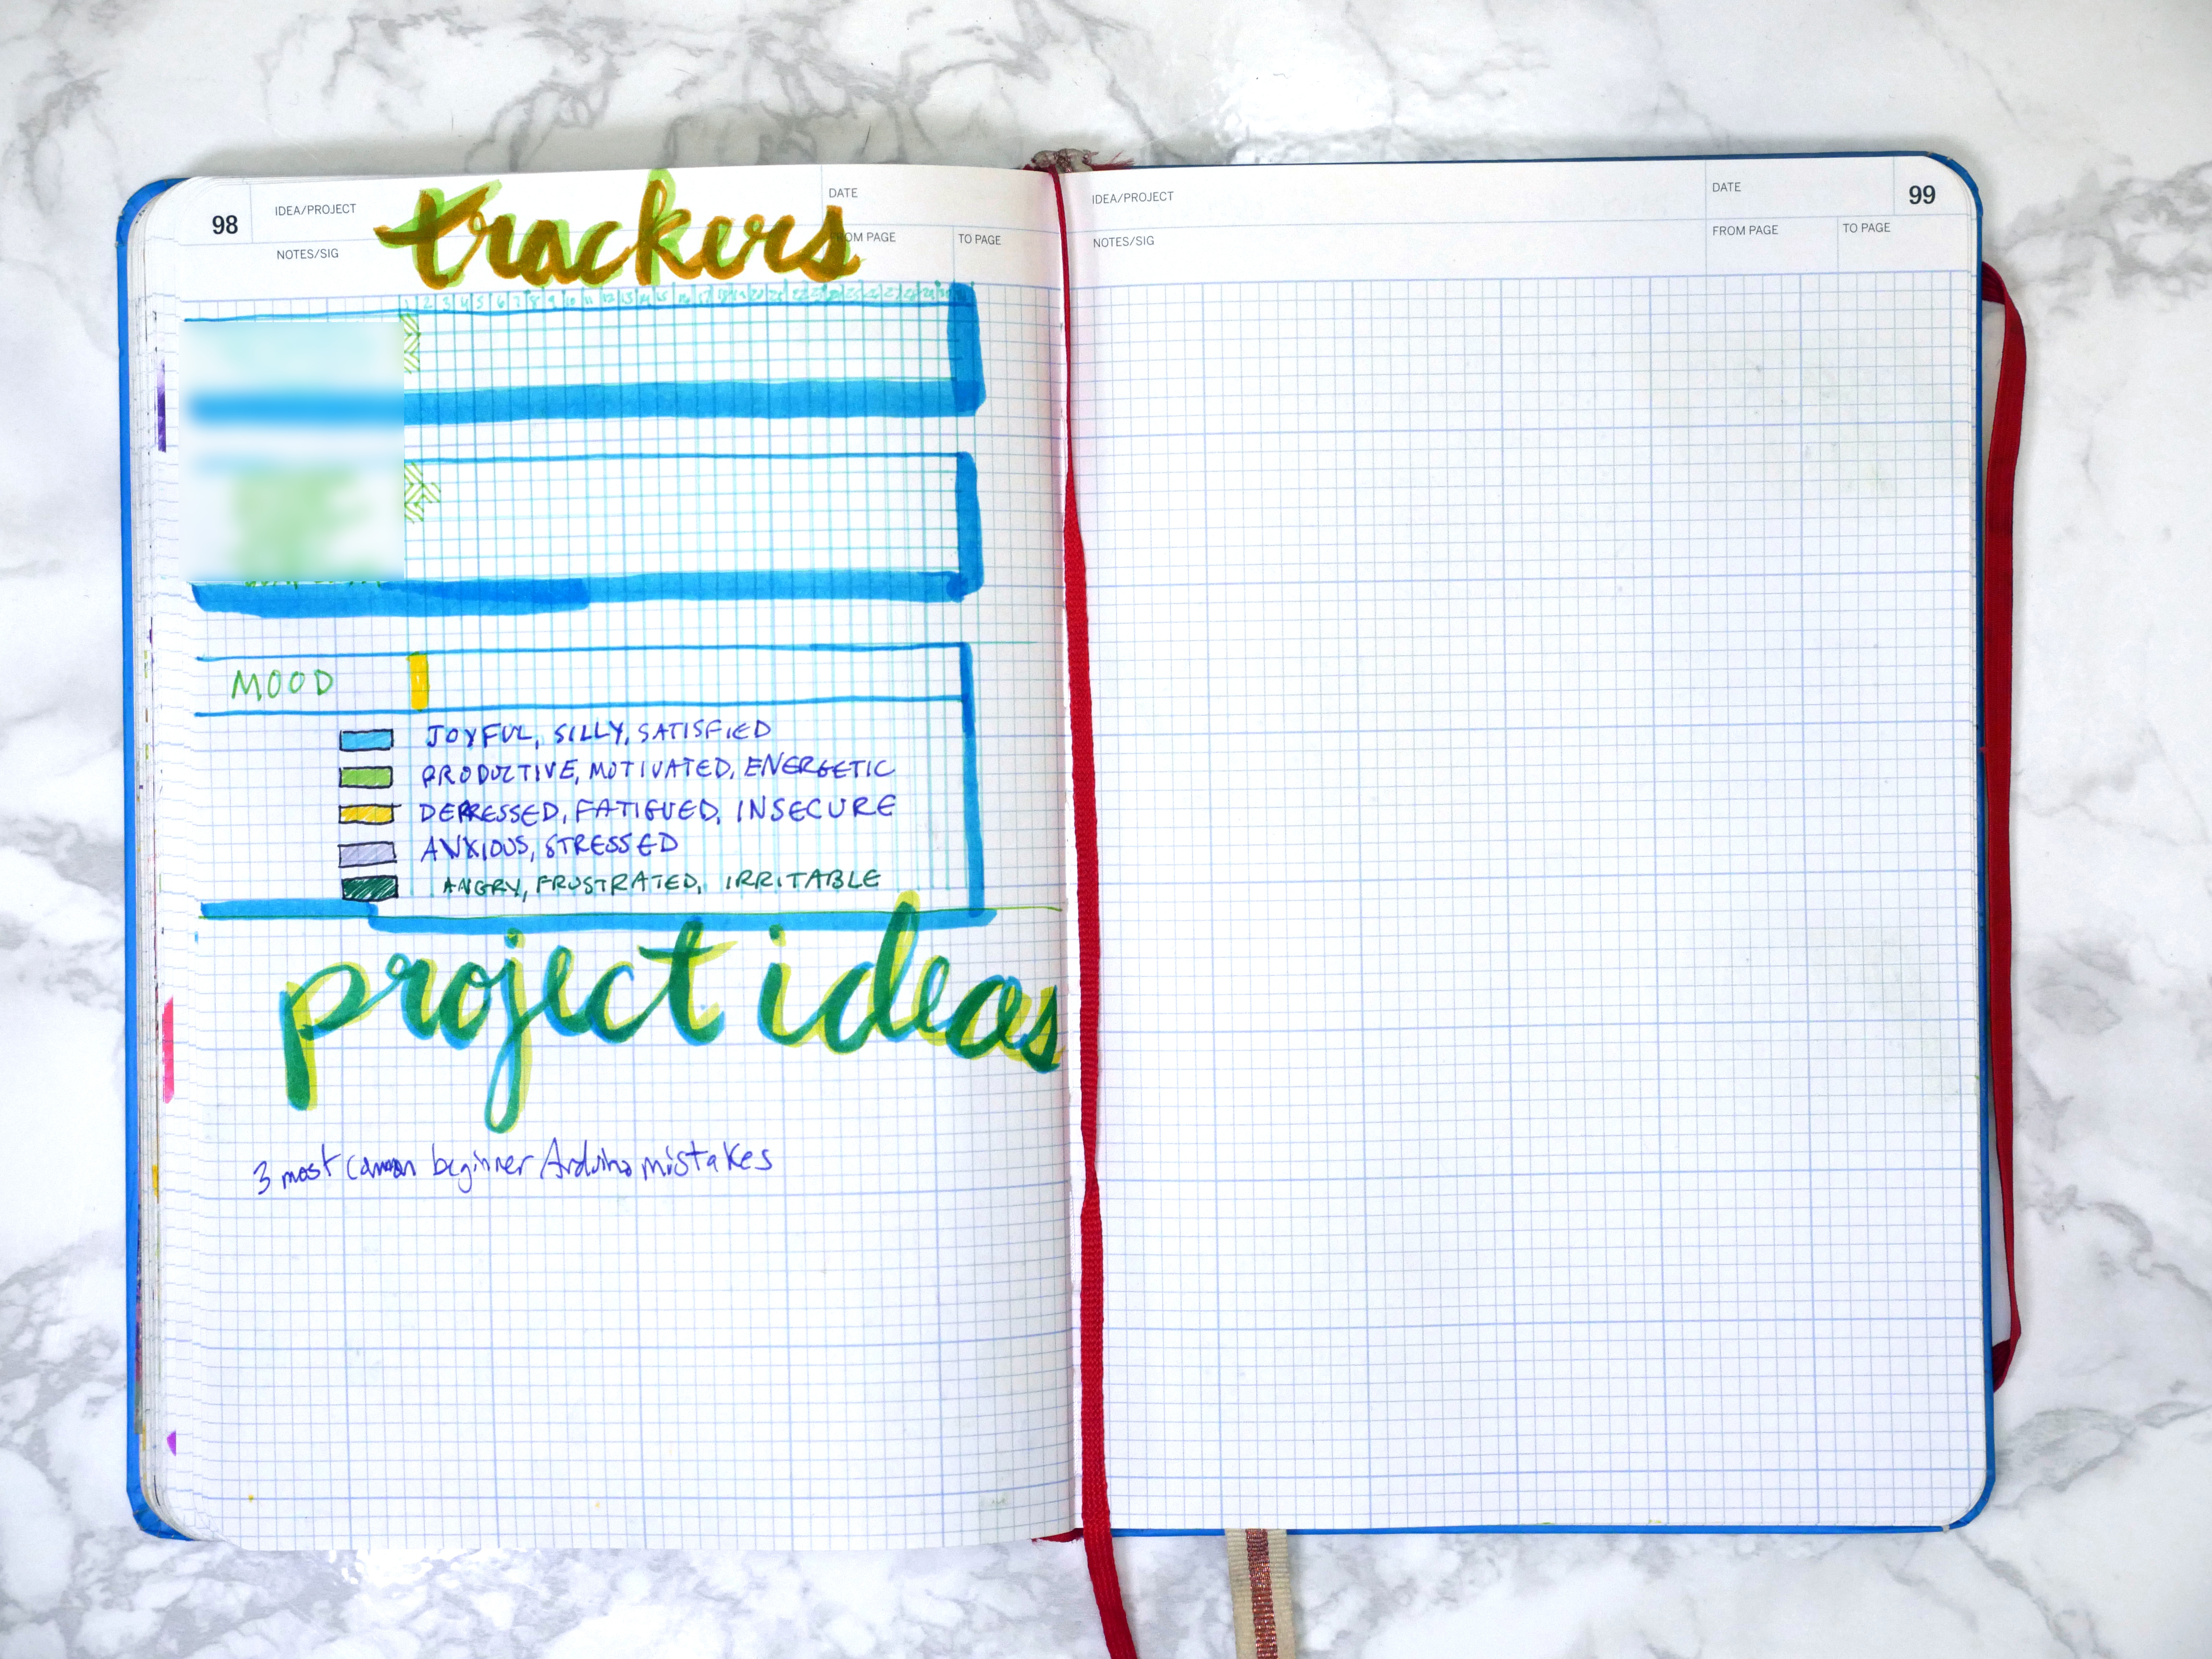 98
IDEA/PROJECT
trackers
DATE
NOTES/SIG
FROM PAGE
TO PAGE
1 2 3 4 5 6 7 8 9 10 11 12 13 14 15 16 17 18 19 20
MOOD
JOYFUL, SILLY, SATISFIED
PRODUCTIVE, MOTIVATED, ENERGETIC
DEPRESSED, FATIGUED, INSECURE
ANXIOUS, STRESSED
ANGRY, FRUSTRATED, IRRITABLE
project ideas
3 most common beginner Arduino mistakes
IDEA/PROJECT
DATE
99
NOTES/SIG
FROM PAGE
TO PAGE